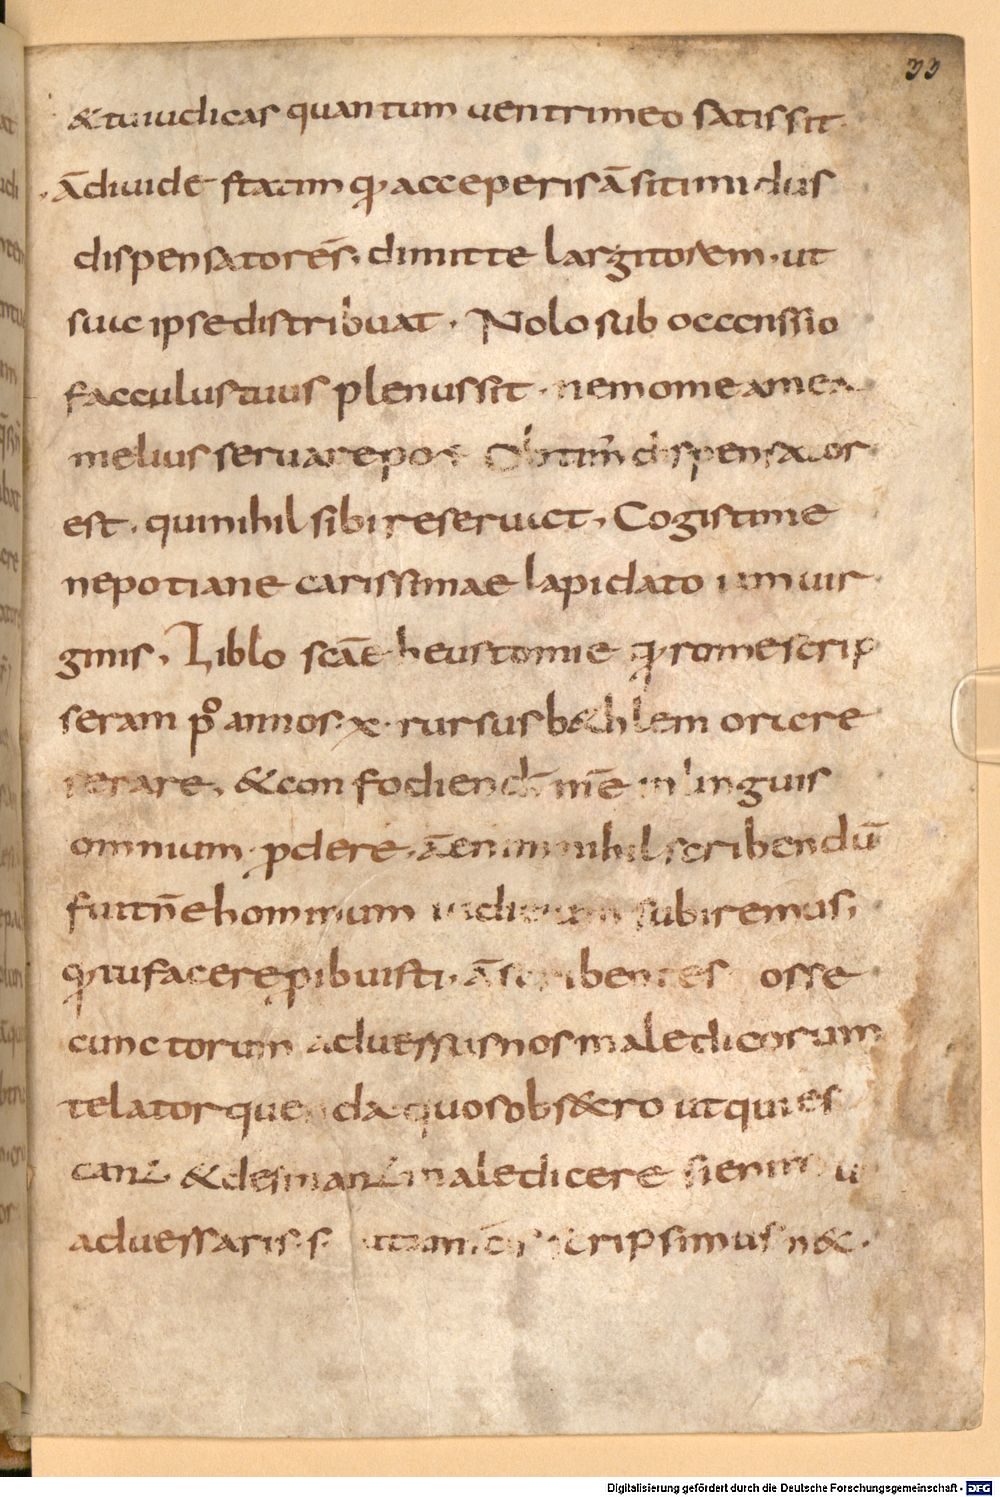 33
& tu iudicas quantum uentri meo satis sit.
Ā diuide statim q̄ acceperis ā si timidus
dispensator ēs. dimitte largitorem. ut
sua ipse distribuat. Nolo sub occcnssio
facculus tuus plenus sit. nemo me a mea
melius seruare pot dispensator
est. qui nihil sibi reseruat, Cogis tu me
nepotiane carissimae lapidato iam uir
ginis. Liblo scāe heustomie q̄ rome scrip
seram p° annos. x. rursus b&hlem ora re
rerare, & confodiendū me in linguis
omnium pdere. ā enim nihil scribendū
fuit ne hominum iudicium subiremus,
q̄ tu facere pibuisti. ā scribentes osse
cunctorum aduessus nos maledicorum
tela torque da quos obs&cro ut qui es
cant & desinant maledicere si enim u
aduessaris. s scripsimus n&.
Digitalisierung gefördert durch die Deutsche Forschungsgemeinschaft - DFG